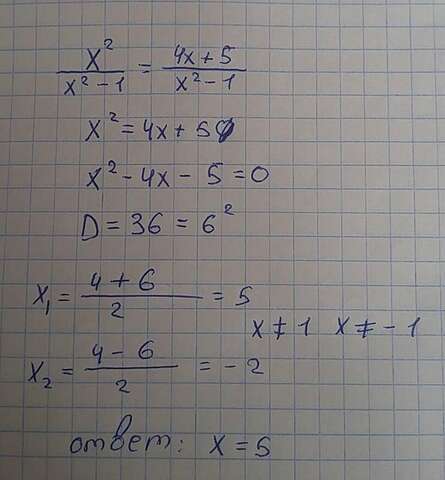 x²/(x² - 1) = (4x + 5)/(x² - 1)
x² = 4x + 5
x² - 4x - 5 = 0
D = 36 = 6²
x₁ = (4 + 6)/2 = 5
x ≠ 1 x ≠ - 1
x₂ = (4 - 6)/2 = - 2
ответ: x = 5